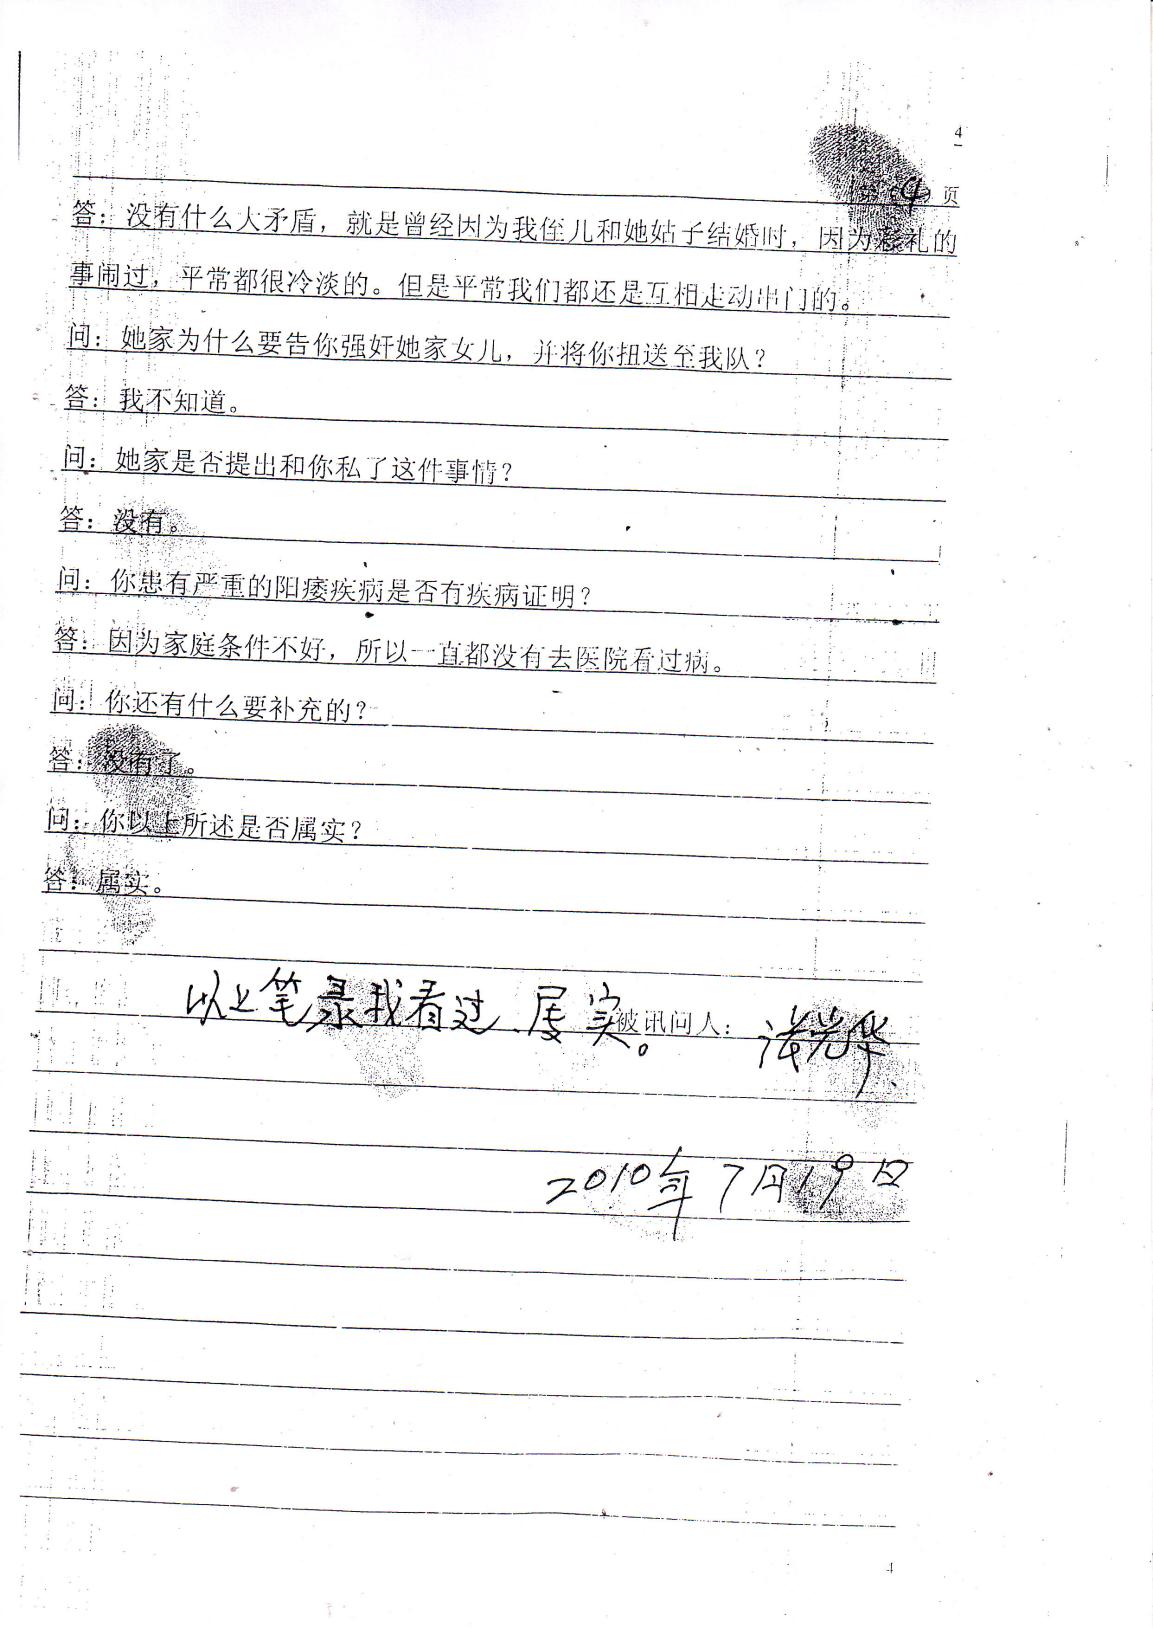 4
第(4)页
答：没有什么大矛盾，就是曾经因为我侄儿和她姑子结婚时，因为 礼的
事闹过，平常都很冷淡的。但是平常我们都还是互相走动串门的。
问：她家为什么要告你强奸她家女儿，并将你扭送至我队？
答：我不知道。
问：她家是否提出和你私了这件事情？
答：没有。
问：你患有严重的阳痿疾病是否有疾病证明？
答：因为家庭条件不好，所以一直都没有去医院看过病。
问：你还有什么要补充的？
答：没有了。
问：你以上所述是否属实？
答：属实。
以上笔录我看过、属实。被讯问人： 光华
2010年7月19日
4